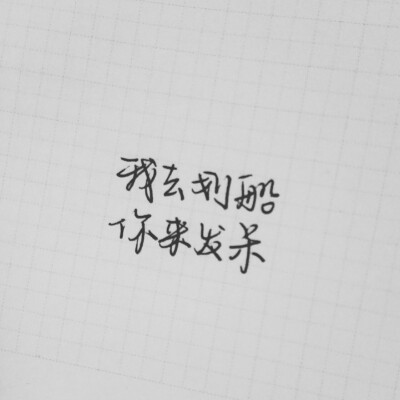 我去划船
你来发呆